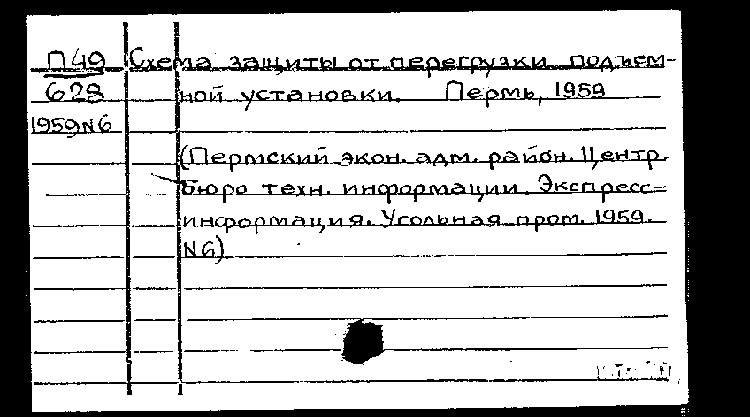 П49 Схема защиты от перегрузки подъем-
628 ной установки. Пермь, 1959
1959 N6
(Пермский экон. адм. район. Центр.
бюро техн. информации. Экспресс-
информация. Угольная пром. 1959.
N6)